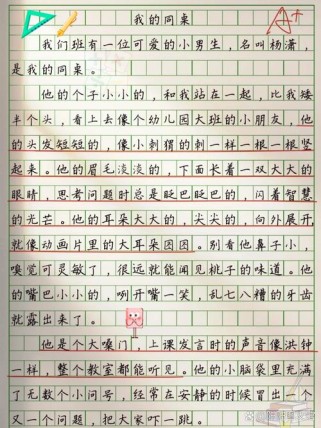 我的同桌
A+
我们班有一位可爱的小男生，名叫杨潇，
是我的同桌。
他的个子小小的，和我站在一起，比我矮
半个头，看上去像个幼儿园大班的小朋友，他
的头发短短的，像小刺猬的刺一样一根一根竖
起来。他的眉毛淡淡的，下面长着一双大大的
眼睛，思考问题时总是眨巴眨巴的，闪着智慧
的光芒。他的耳朵大大的，尖尖的，向外展开，
就像动画片里的大耳朵图图。别看他鼻子小，
嗅觉可灵敏了，很远就能闻见桃子的味道。他
的嘴巴小小的，咧开嘴一笑，乱七八糟的牙齿
就露出来了。
他是个大嗓门，上课发言时的声音像洪钟
一样，整个教室都能听见。他的小脑袋里充满
了无数个小问号，经常在安静的时候冒出一个
又一个问题，把大家吓一跳。